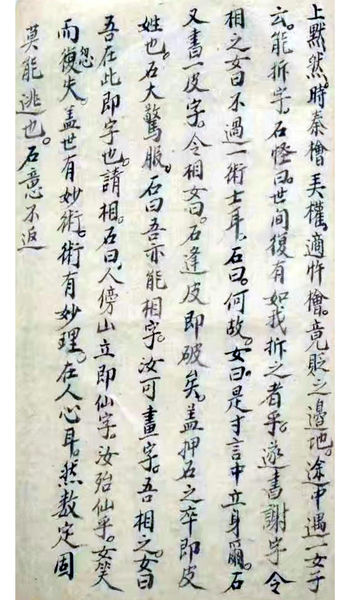 上黙然。時秦檜弄權。適忤檜。竟貶之邊地。途中遇一女子
云。能拆字。石怪曰。世間復有如我拆之者乎。遂書謝字令
相之女曰不過一術士耳。石曰。何故。女曰。是寸言中立身爾。石
又書一皮字。令相女曰。石逢皮即破矣。蓋押石之卒即皮
姓也。石大驚服。石曰吾亦能相字。汝可畫字。吾相之。女曰
吾在此即字也。請相。石曰。人傍山立即仙字。汝殆仙乎。女笑
而忽復失。蓋世有妙術。術有妙理。在人心耳。然数定固
莫能逃也。石意不返